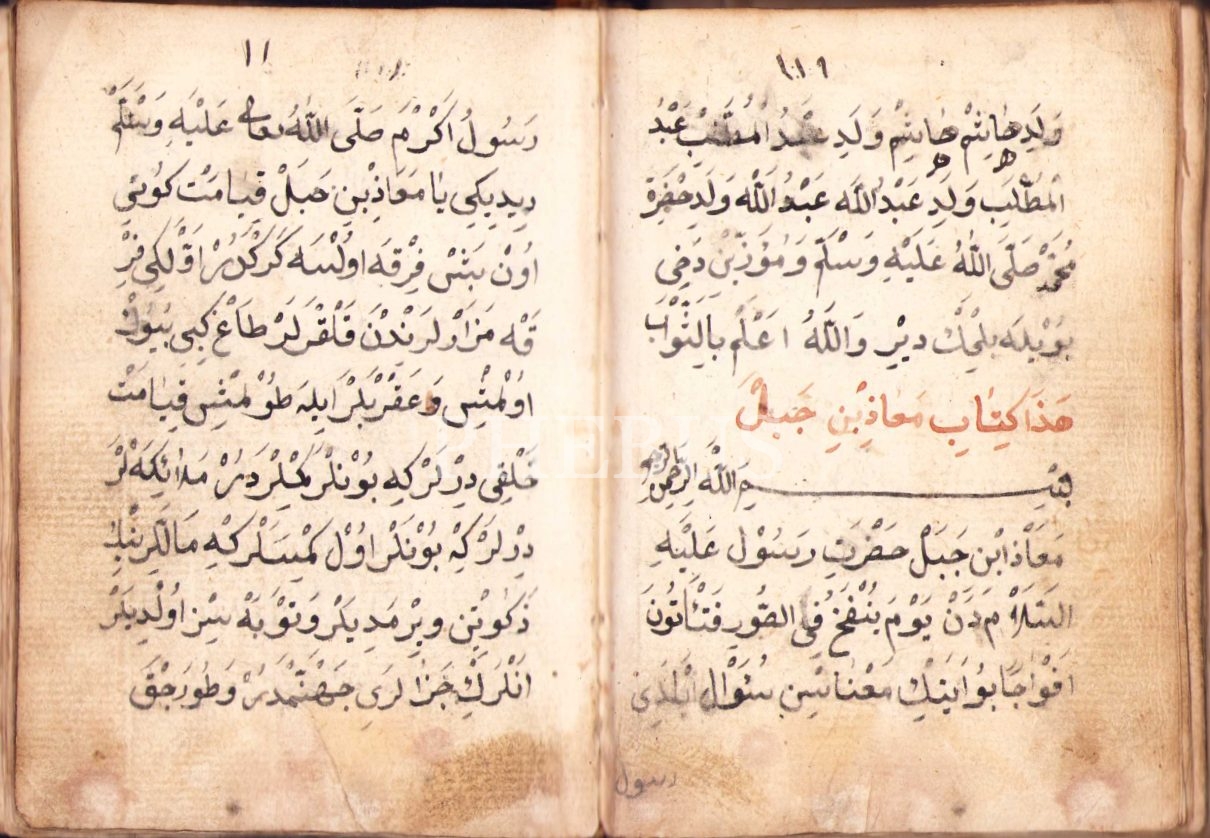 ١٠٩
وَلَدِ هَاشِمْ هَاشِمْ وَلَدِ عَبْدُ الْمُطَّلِبْ عَبْدُ
الْمُطَّلِبَ وَلَدِ عَبْدُ اللّٰه عَبْدُ اللّٰه وَلَدِ حَضْرَةِ
مُحَمَّدْ صَلَّى اللّٰهُ عَلَيْهِ وَسَلَّمْ وَمُؤْذِّنْ دَخِى
بُوْيْلَه بِلْمَكْ دِيْرِ وَاللّٰهُ اَعْلَم بِالثَّوَابْ
هَذَا كِتَابِ مَعَاذِ بْنِ جَبَلْ
بِسْمِ اللّٰه الرَّحْمٰنِ الرَّحِيمِ
مَعَاذْ ابْنِ جَبَلْ حَضْرَتِ رَسُوْل عَلَيْهِ
السَّلَامْ دَنْ يَوْمَ يُنْفَخُ فِى الصُّورِ فَتَأْتُونَ
اَفْوَاجًا بُو اٰيَتِكْ مَعْنَاسِين سُئَوْالْ اَيْلَدِى
رسول
١١
رَسُولُ اكْرَمْ صَلَّى اللّٰهُ تعالى عَلَيْهِ وَسَلَّمْ
دِيدِيكِى يَا مَعَاذِ بِنِ جَبَلْ قِيَامَتْ كُونِى
اُونْ بَشْ فِرْقَه اولْسَه كَرَكْدُرْ اَوَّلْكِى فِرْ
قَه مَزَارْلَرنْدَنْ قَلْقَرْلَرْ طَاغْ كِبِى بُيُوكْ
اوُلْمُشْ وَعَقْرَبْلَرْ ايلَه طُوْلْمْش قِيَامَتْ
خَلْقِى دِرْلَرْ كِه بُوْنْلَرْ كِمْلَرْدُرْ مَلَائِكَه لَرْ
دِرْلَرْ كِهْ بُوْنْلَرْ اوُلْ كِمْسَلَرْ كِه مَالْلَرِينْكْ
ذَكٰوتِنْ وِيرْمَدِيلَرْ وَتَوْبَه سِز اُولْدِيلَرْ
اَنْلَرِكْ جَزَالَرى جَهَنَّمْدُرْ وَطُورَجَقْ